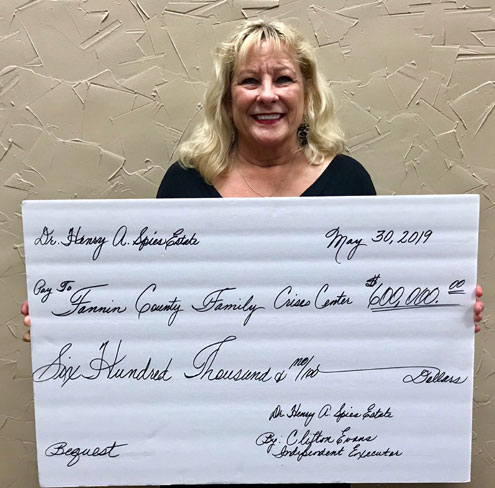 Dr. Henry A. Spies Estate
May 30, 2019
Pay To Fannin County Family Crises Center $600,000.00
Six Hundred Thousand & no/100 Dollars
Dr. Henry A. Spies Estate
By: Clifton Evans
Independent Executor
Bequest